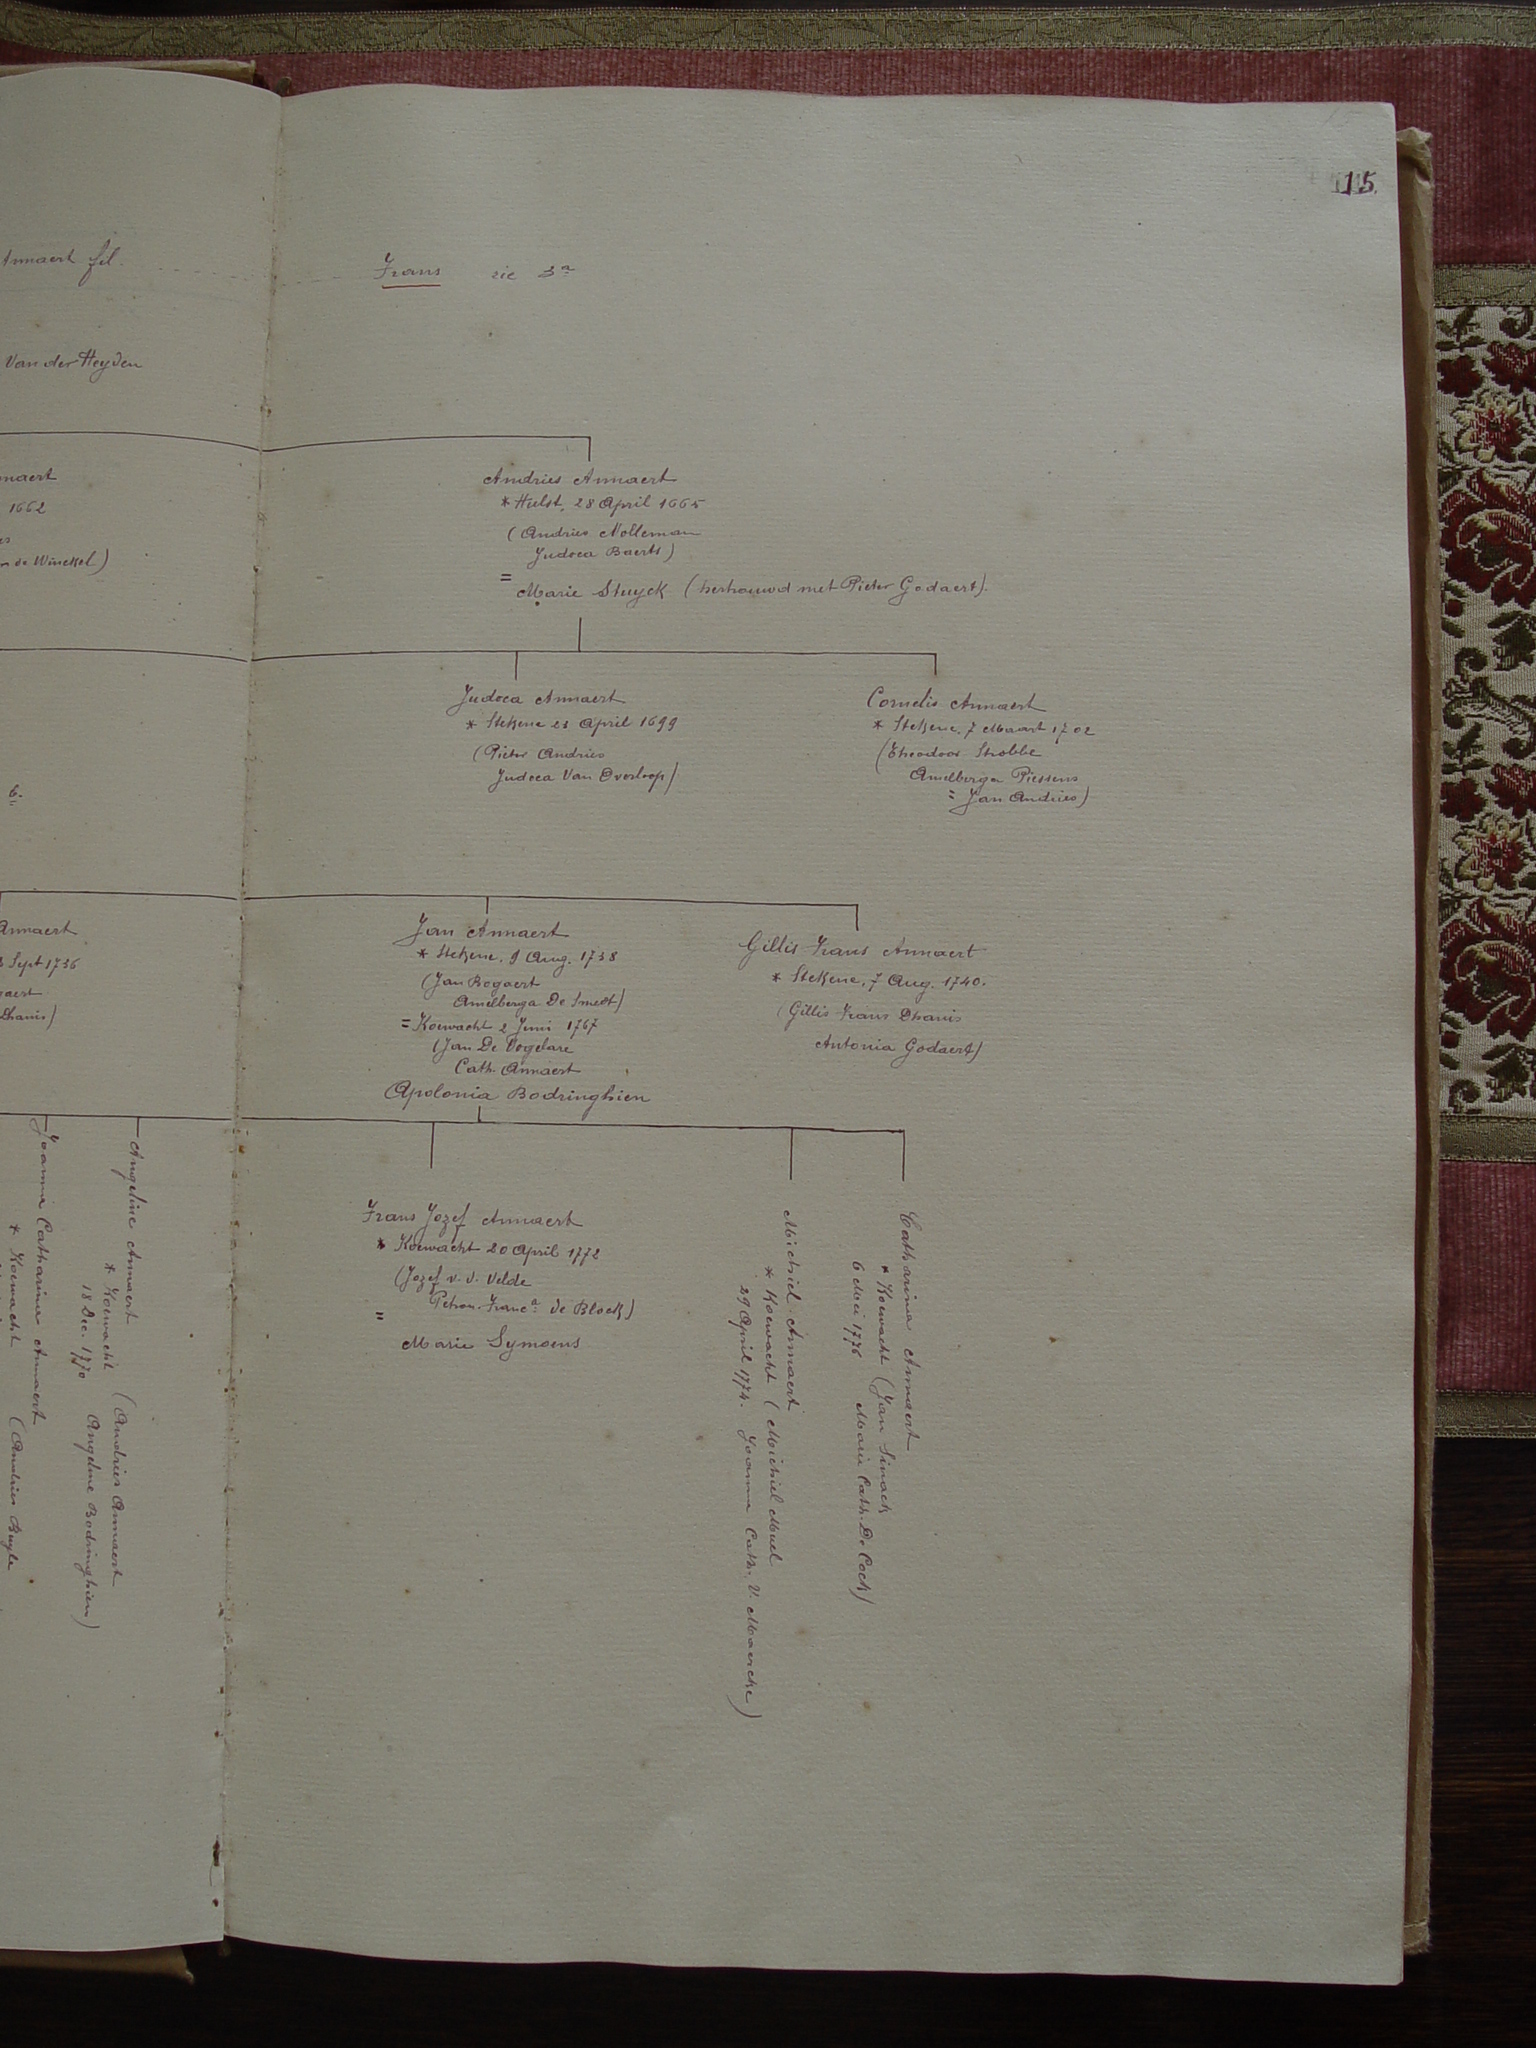 15.
Annaert fil.
Frans zie 3a
Van der Heyden
naert
1662
de Winckel)
Andries Annaert
* Hulst, 28 April 1665
(Andries Nolleman
Judoca Baerts)
=
Marie Stuyck (hertrouwd met Pieter Godaert).
Judoca Annaert
* Stekene 23 April 1699
(Pieter Andries
Judoca Van Overloop)
Cornelis Annaert
* Stekene, 7 Maart 1702
(Theodoor Strobbe
Amelberga Piessens
= Jan Andries)
6.
Annaert
Sept 1736
gaert
Dhanis)
Jan Annaert
* Stekene, 9 Aug. 1738
(Jan Bogaert
Amelberga De Smedt)
= Koewacht 2 Juni 1767
(Jan De Vogelare
Cath. Annaert
Apolonia Bodringhien
Gillis Frans Annaert
* Stekene, 7 Aug. 1740.
(Gillis Frans Dhanis
Antonia Godaert)
Joanna Catharina Annaert
* Koewacht (Andries Buyle
Angeline Annaert
* Koewacht (Andries Annaert
18 Dec. 1770 Angeline Bodringhien)
Frans Jozef Annaert
* Koewacht 20 April 1772
(Jozef v. d. Velde
Petron. Franca de Block)
=
Marie Symoens
Michiel Annaert
* Koewacht (Michiel Muel
29 April 1774. Joanna Cath. V. Maercke)
Catharina Annaert
* Koewacht (Jan Sinack
6 Mei 1776 Marie Cath. De Cock)